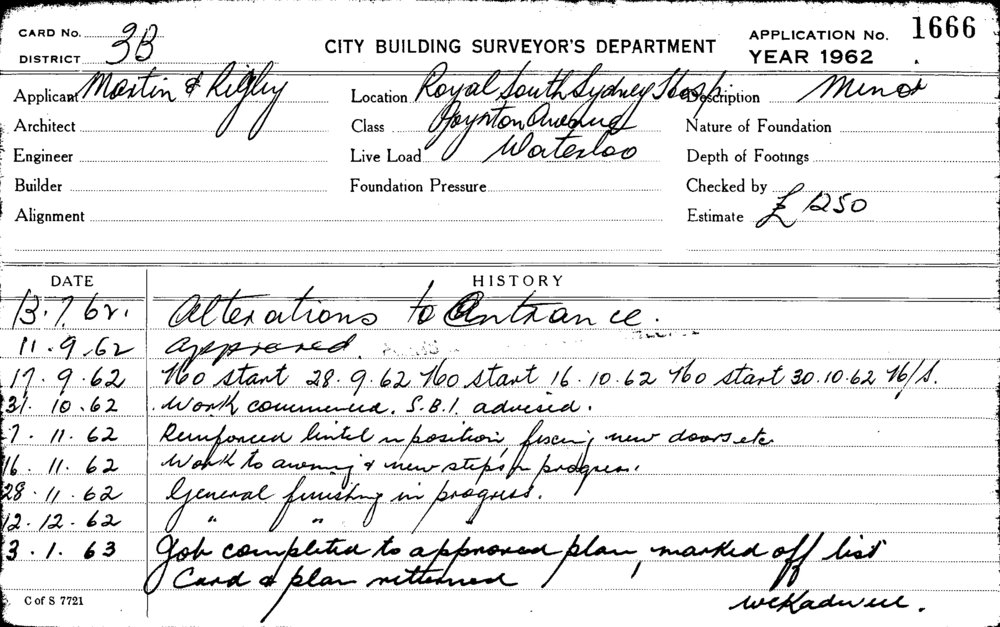 CARD No.
DISTRICT 3B
CITY BUILDING SURVEYOR'S DEPARTMENT
APPLICATION No. 1666
YEAR 1962
Applicant Martin & Rigby Location Royal South Sydney Hosp. Description Minor
Architect Class Joynton Avenue Nature of Foundation
Engineer Live Load Waterloo Depth of Footings
Builder Foundation Pressure Checked by
Alignment Estimate £ 1250
DATE HISTORY
13.7.62. Alterations to Entrance.
11.9.62 Approved.
17.9.62 No start 28.9.62 No start 16.10.62 No start 30.10.62 N/S.
31.10.62 Work commenced. S.B.I. advised.
7.11.62 Reinforced lintel in position, fixing new doors etc
16.11.62 Work to awning & new steps in progress.
28.11.62 General finishing in progress.
12.12.62 " "
3.1.63 Job completed to approved plan, marked off list
Card & plan returned
C of S 7721